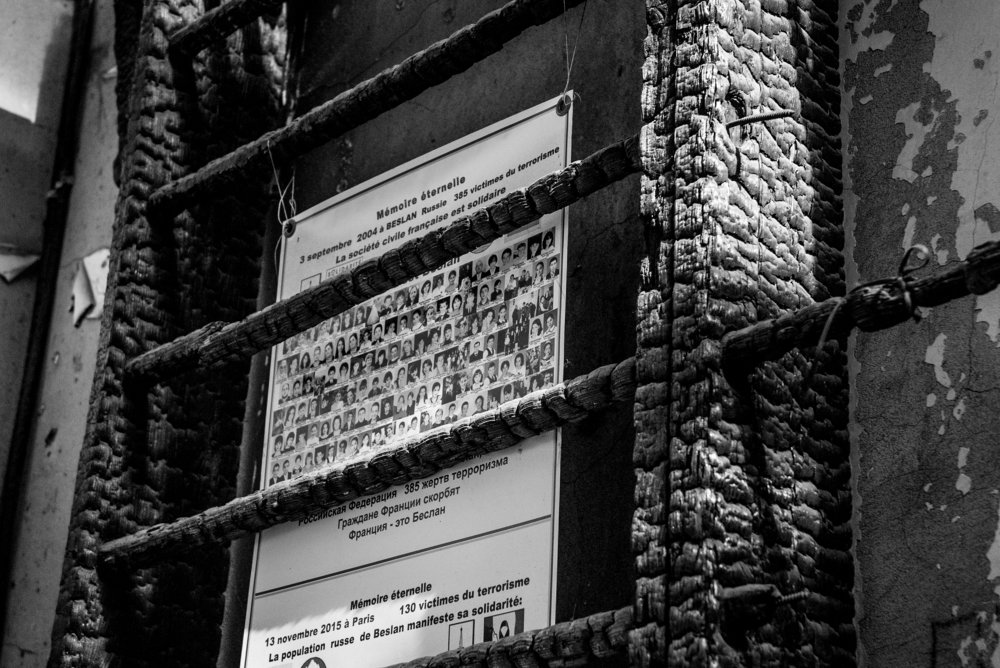 Mémoire éternelle
3 septembre 2004 à BESLAN Russie 385 victimes du terrorisme
La société civile française est solidaire
Beslan
Российская Федерация 385 жертв терроризма
Граждане Франции скорбят
Франция - это Беслан
Mémoire éternelle
13 novembre 2015 à Paris 130 victimes du terrorisme
La population russe de Beslan manifeste sa solidarité: